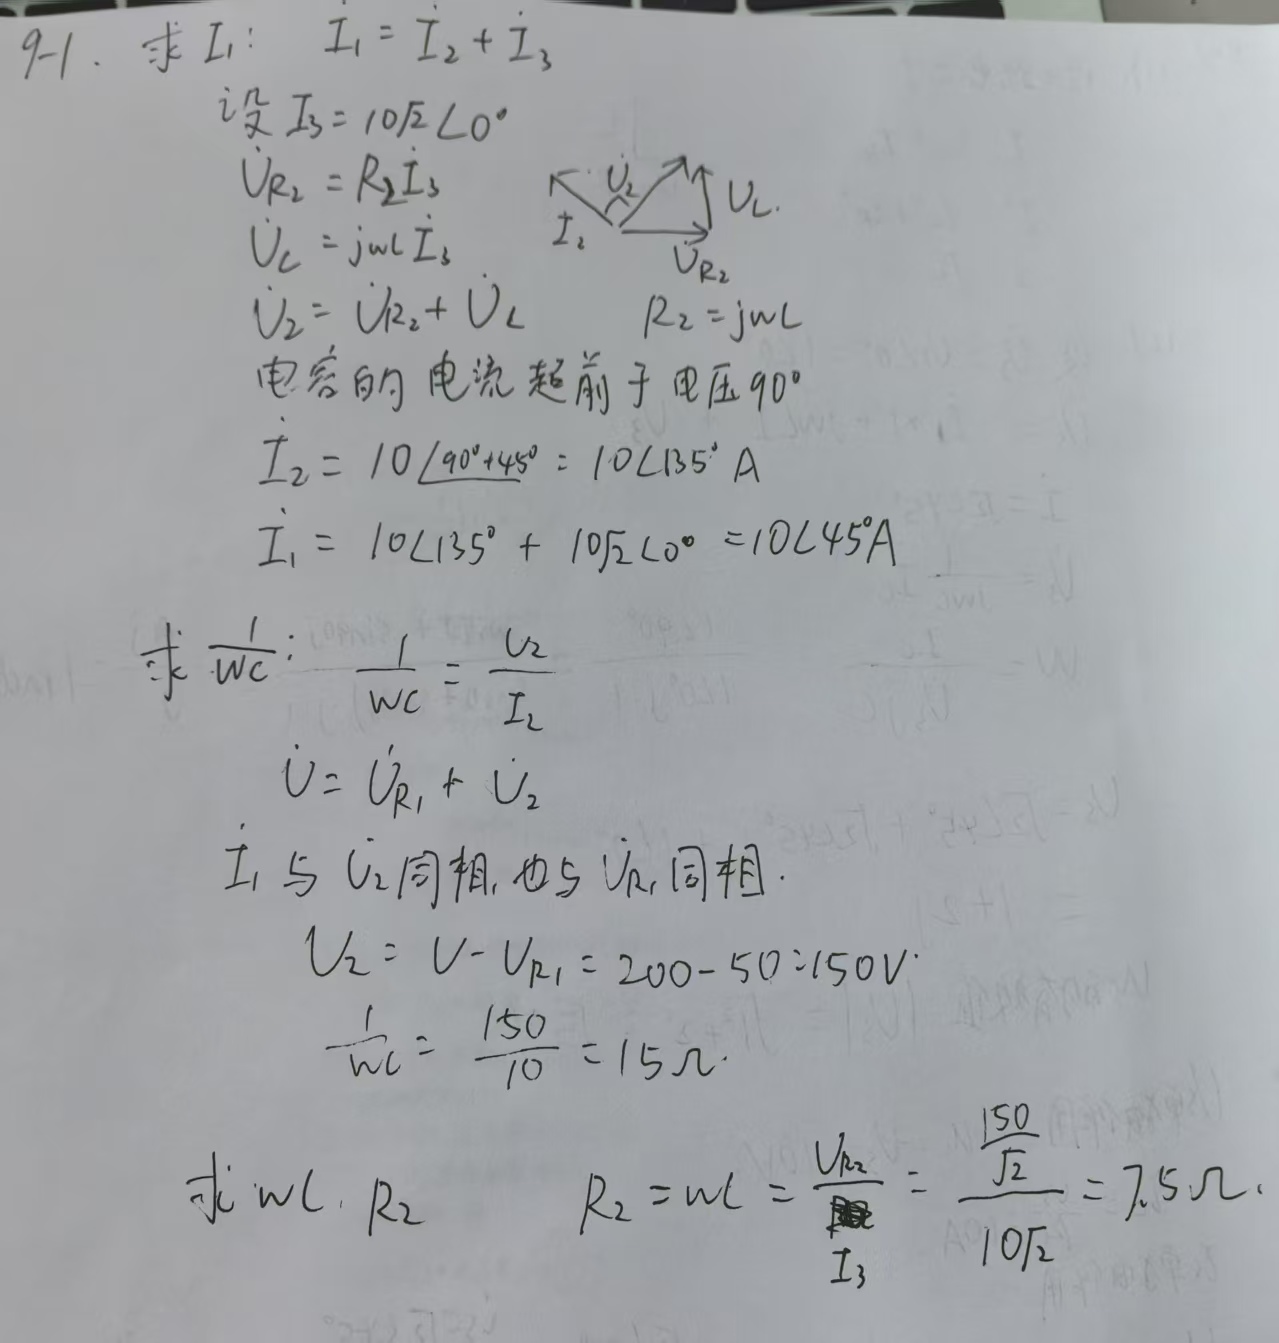 9-1. 求 I₁: İ₁ = İ₂ + İ₃
设 İ₃ = 10√2∠0°
U̇R₂ = R₂İ₃
U̇L = jwL İ₃
U̇₂ = U̇R₂ + U̇L
U̇₂
UL.
İ₂
U̇R₂
R₂ = jwL
电容的电流超前于电压90°
İ₂ = 10∠90°+45° = 10∠135° A
İ₁ = 10∠135° + 10√2∠0° = 10∠45°A
求 1/wc: 1/wc = U₂/I₂
U̇ = U̇R₁ + U̇₂
İ₁ 与 U̇₂同相, 也与 U̇R₁ 同相.
U₂ = U - UR₁ = 200 - 50 = 150V.
1/wc = 150/10 = 15Ω.
求 wL. R₂ R₂ = wL = UR₂/I₃ = (150/√2)/(10√2) = 7.5Ω.